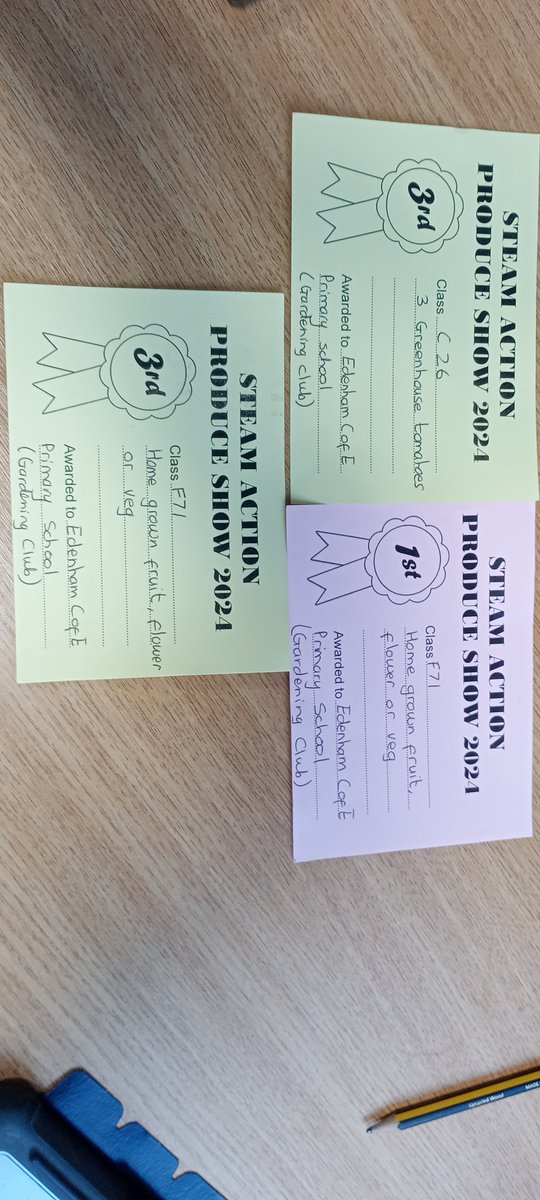 STEAM ACTION
PRODUCE SHOW 2024
3rd
Class C 26
3 Greenhouse tomatoes
Awarded to Edenham C of E
Primary School
(Gardening Club)
STEAM ACTION
PRODUCE SHOW 2024
1st
Class F71
Home grown fruit,
flower or veg
Awarded to Edenham C of E
Primary School
(Gardening Club)
STEAM ACTION
PRODUCE SHOW 2024
3rd
Class F71
Home grown fruit, flower
or veg
Awarded to Edenham C of E
Primary School
(Gardening Club)
Upcycled Wood